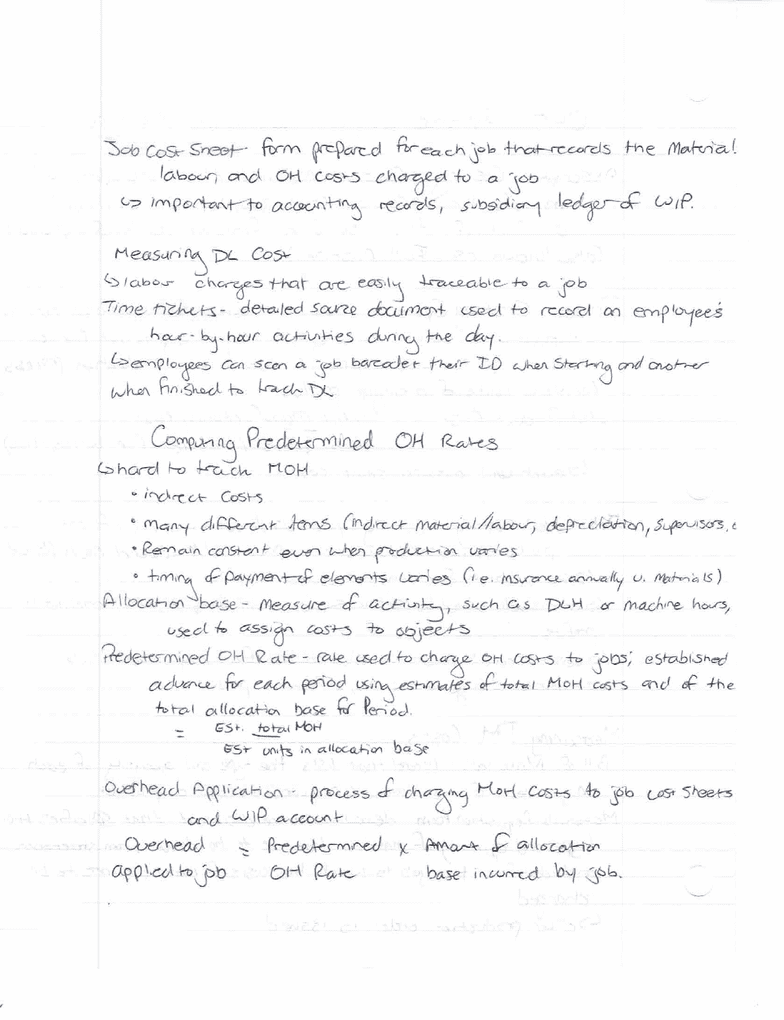 Job Cost Sheet - form prepared for each job that records the Material
labour, and OH costs charged to a job
↳ important to accounting records, subsidiary ledger of WIP.
Measuring DL Cost
↳ labour charges that are easily traceable to a job
Time tickets - detailed source document used to record an employee's
hour-by-hour activities during the day.
↳ employees can scan a job barcode + their ID when starting and another
when finished to track DL
Computing Predetermined OH Rates
↳ hard to track MOH
• indirect costs
• many different items (indirect material/labour, depreciation, supervisors,
• Remain constant even when production varies
• timing of payment of elements varies (i.e. insurance annually v. materials)
Allocation base - measure of activity, such as DLH or machine hours,
used to assign costs to objects
Predetermined OH Rate - rate used to charge OH costs to jobs; established
advance for each period using estimates of total MOH costs and of the
total allocation base for Period.
= Est. total MOH
Est units in allocation base
Overhead Application - process of charging MOH costs to job cost sheets
and WIP account
Overhead = Predetermined x Amount of allocation
applied to job OH Rate base incurred by job.